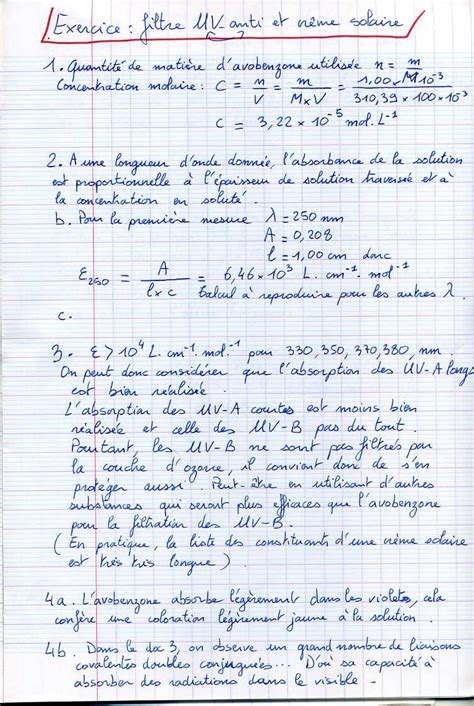 Exercice : filtre UV anti et crème solaire
1. Quantité de matière d'avobenzone utilisée n = m/M
Concentration molaire : C = n/V = m/(M×V) = 1,00 × 10⁻³/(310,39 × 100 × 10⁻³)
C = 3,22 × 10⁻⁵ mol.L⁻¹
2. A une longueur d'onde donnée, l'absorbance de la solution
est proportionnelle à l'épaisseur de solution traversée et à
la concentration en soluté.
b. Pour la première mesure λ = 250 nm
A = 0,208
l = 1,00 cm donc
ε₂₅₀ = A/(l×c) = 6,46 × 10³ L. cm⁻¹. mol⁻¹
Calcul à reproduire pour les autres λ.
c.
3. ε > 10⁴ L. cm⁻¹. mol⁻¹ pour 330, 350, 370, 380, nm.
On peut donc considérer que l'absorption des UV-A longs
est bien réalisée.
L'absorption des UV-A courtes est moins bien
réalisée et celle des UV-B pas du tout.
Pourtant, les UV-B ne sont pas filtrés par
la couche d'ozone, il convient donc de s'en
protéger aussi. Peut-être en utilisant d'autres
substances qui seront plus efficaces que l'avobenzone
pour la filtration des UV-B.
(En pratique, la liste des constituants d'une crème solaire
est très très longue).
4a. L'avobenzone absorbe légèrement dans les violets, cela
confère une coloration légèrement jaune à la solution.
4b. Dans le doc 3, on observe un grand nombre de liaisons
covalentes doubles conjuguées... D'où sa capacité à
absorber des radiations dans le visible.